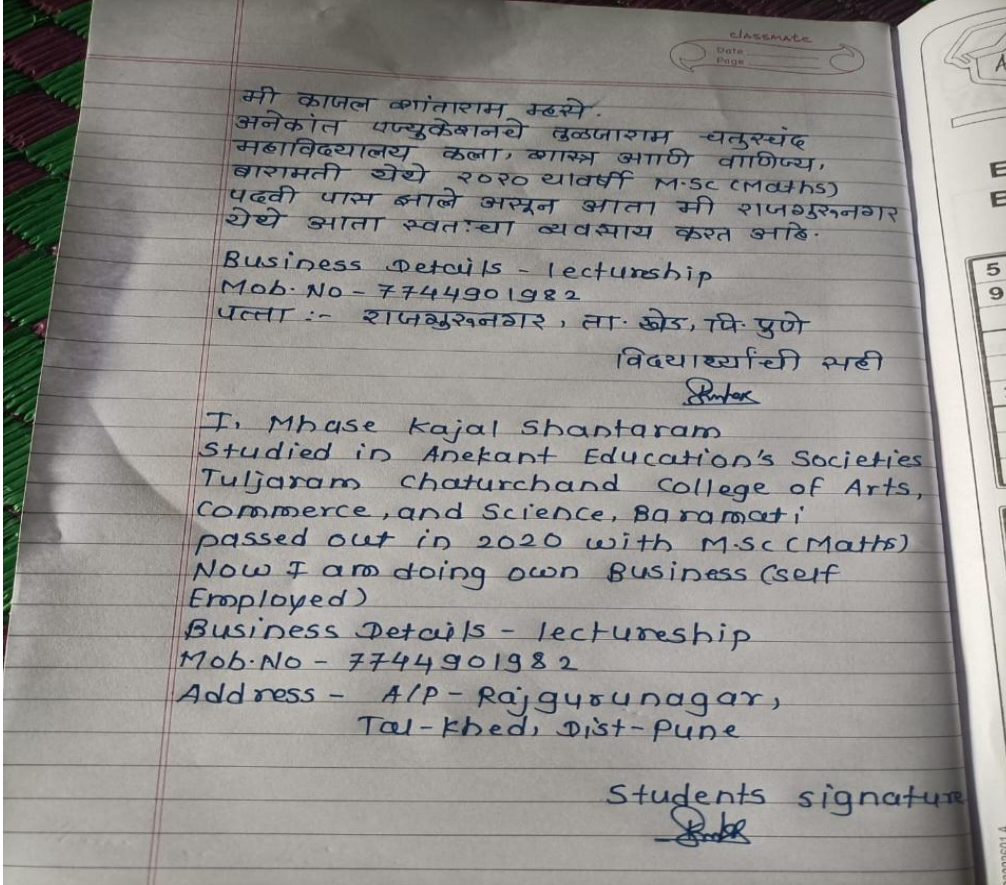 classmate
Date
Page
मी काजल शांताराम म्हसे.
अनेकांत एज्युकेशनचे तुळजाराम चतुरचंद
महाविदयालय कला, शास्त्र आणि वाणिज्य,
बारामती येथे २०२० यावर्षी M.SC (Maths)
पदवी पास झाले असून आता मी राजगुरुनगर
येथे आता स्वतःचा व्यवसाय करत आहे.
Business Details - lectureship
Mob. No - 7744901982
पत्ता :- राजगुरुनगर, ता. खेड, जि. पुणे
विदयार्थ्यांची सही
I, Mhase Kajal Shantaram
Studied in Anekant Education's Societies
Tuljaram Chaturchand College of Arts,
Commerce, and Science, Baramati
passed out in 2020 with M.SC (Maths)
Now I am doing own Business (self
Employed)
Business Details - lectureship
Mob. No - 7744901982
Address - A/P - Rajgurunagar,
Tal - Khed, Dist - Pune
Students signature
5
9